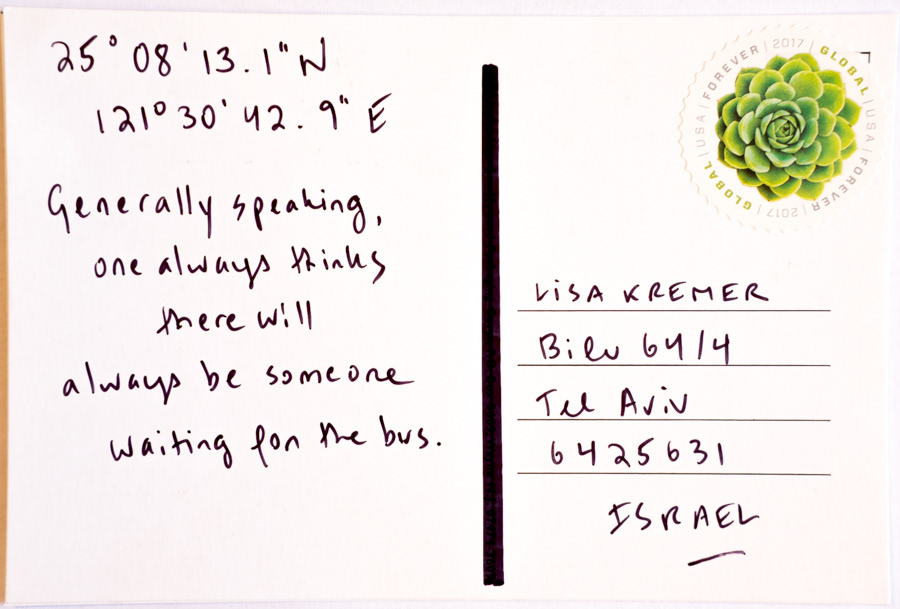 25° 08' 13.1" N
121° 30' 42.9" E
Generally speaking,
one always thinks
there will
always be someone
waiting for the bus.
GLOBAL | USA | FOREVER | 2017 | GLOBAL | USA | FOREVER | 2017 |
LiSA KREMER
Bilu 64/4
Tel Aviv
6425631
ISRAEL